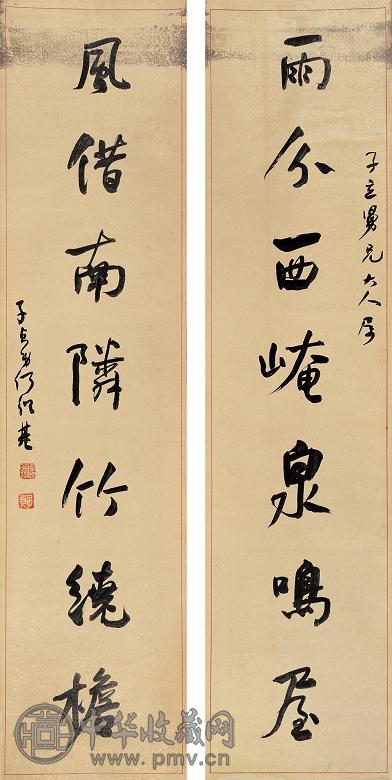 子立舅兄大人屬
雨分西崦泉鳴屋
風借南隣竹繞檐
子貞弟何紹基
中华收藏网
www.pmv.cn